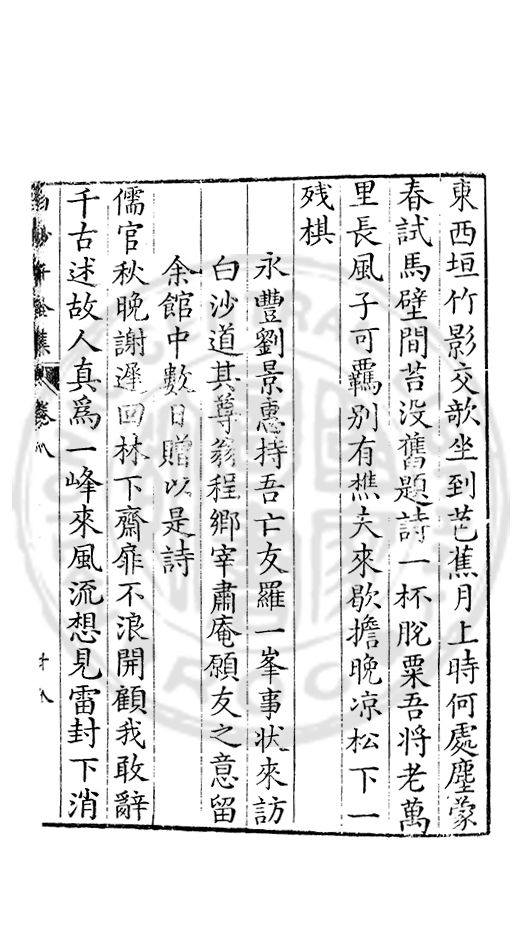 東西垣竹影交欹坐到芭蕉月上時何處塵蒙
春試馬壁間苔没舊題詩一杯脫粟吾將老萬
里長風子可羈别有樵夫來歇擔晚凉松下一
殘棋
永豐劉景惠持吾亡友羅一峯事狀來訪
白沙道其尊翁程鄉宰肅庵願友之意留
余館中數日贈以是詩
儒官秋晚謝遲回林下齋扉不浪開顧我敢辭
千古述故人真爲一峰來風流想見雷封下消
白沙子全集 卷八 十八